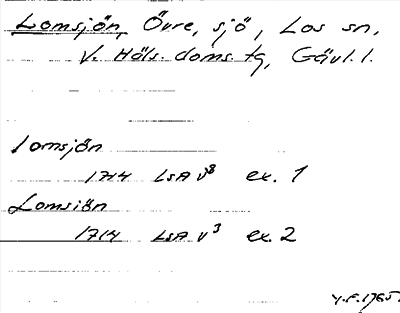 Lomsjön, Övre, sjö, Los sn,
V. Häls. doms. tg, Gävl. l.
Lomsjön
1714 LSA V3 ex. 1
Lomsiön
1714 LSA V3 ex. 2